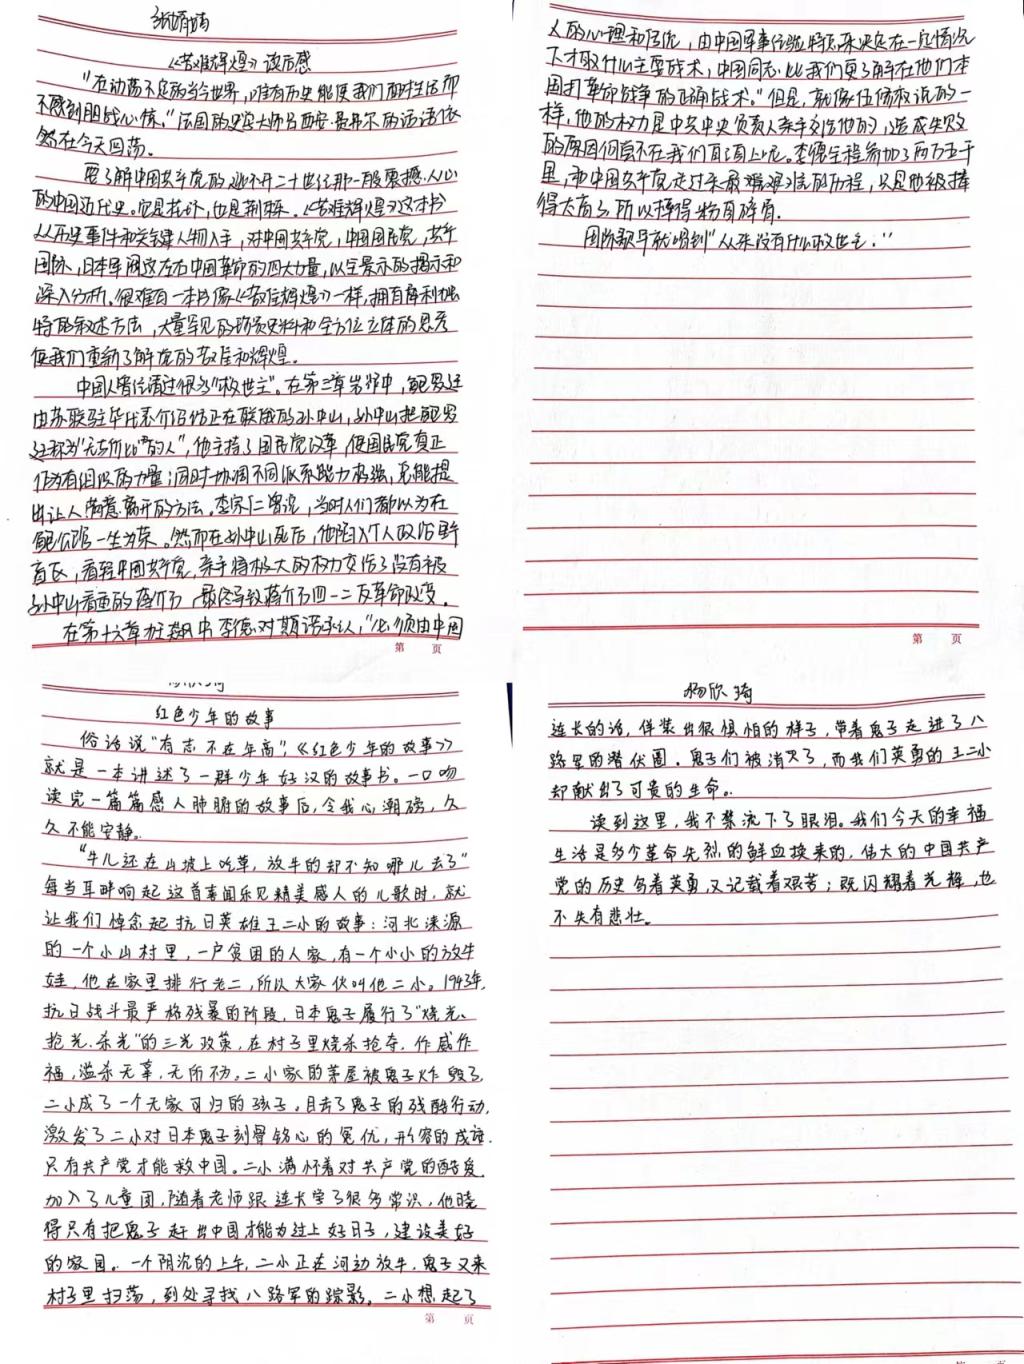 张婧婧
《苦难辉煌》读后感
"在动荡不定的当今世界，唯有历史能使我们面对生活而
不感到胆战心惊。"法国的史学大师吕西安·费弗尔的话语依
然在今天回荡。
要了解中国共产党的，逃不开二十世纪那一段震撼人心
的中国近代史。它是花卉，也是荆棘。《苦难辉煌》这本书
从历史事件和关键人物入手，对中国共产党，中国国民党，共产
国际，日本军阀这左右中国革命的四大力量，以全景示的揭示和
深入分析。很难有一本书像《苦难辉煌》一样，拥有犀利独
特的叙述方法，大量罕见的珍贵史料和全方位立体的思考
使我们重新了解党的苦难和辉煌。
中国人曾信谓过很多"救世主"。在第三章岩浆中，鲍罗廷
由苏联驻华代表介绍给正在联俄的孙中山，孙中山把鲍罗
廷称为"无与伦比的人"，他主持了国民党改革，使国民党真正
作为有组织的力量；同时协调不同派系能力极强，竟能提
出让人满意离开的方法。李宗仁曾说，当时人们都以为在
鲍公馆一生为荣。然而在孙中山死后，他陷入个人政治野
蛮长，看轻中国共产党，亲手将极大的权力交给了没有被
孙中山看重的蒋介石，最终导致蒋介石四一二反革命政变。
在第十六章狂飙中，李德对颠诺承认，"必须由中国
第 页
人的心理和传统，由中国军事经验特点来决定在一定情况
下才取什么主要战术，中国同志比我们更了解在他们本
国打革命战争的正确战术。"但是，就像伍修权说的一
样，他的权力是中共中央负责人亲手交给他的，造成失败
的原因何尝不在我们自项上呢。李德全程参加了两万五千
里，和中国共产党走过来最艰难的历程，只是他被捧
得太高了，所以摔得粉身碎骨。
国际歌早就唱到"从来没有什么救世主..."
第 页
杨欣琦
红色少年的故事
俗话说"有志不在年高"，《红色少年的故事》
就是一本讲述了一群少年好汉的故事书。一口吻
读完一篇篇感人肺腑的故事后，令我心潮磅，久
久不能安静。
"牛儿还在山坡上吃草，放牛的却不知哪儿去了"
每当耳畔响起这首喜闻乐见精美感人的儿歌时，就
让我们悼念起抗日英雄王二小的故事：河北涞源
的一个小山村里，一户贫困的人家，有一个小小的放牛
娃，他在家里排行老二，所以大家伙叫他二小。1943年，
抗日战斗最严格残暴的阶段，日本鬼子履行了"烧光、
抢光、杀光"的三光政策，在村子里烧杀抢夺，作威作
福，滥杀无辜，无所不为。二小家的茅屋被鬼子炸毁了，
二小成了一个无家可归的孩子。目击了鬼子的残酷行动，
激发了二小对日本鬼子刻骨铭心的冤仇，形容的成语，
只有共产党才能救中国。二小满怀着对共产党的酷爱，
加入了儿童团，随着老师跟连长学了很多常识，他晓
得只有把鬼子赶出中国才能为过上好日子，建设美好
的家园。一个阴沉的上午，二小正在河边放牛，鬼子又来
村子里扫荡，到处寻找八路军的踪影。二小想起了
第 页
杨欣琦
连长的话，佯装出很惧怕的样子，带着鬼子走进了八
路军的潜伏圈。鬼子们被消灭了，而我们英勇的王二小
却献出了可贵的生命。
读到这里，我不禁流下了眼泪。我们今天的幸福
生活是多少革命先烈的鲜血换来的，伟大的中国共产
党的历史写着英勇，又记载着艰苦；既闪耀着光辉，也
不失有悲壮。